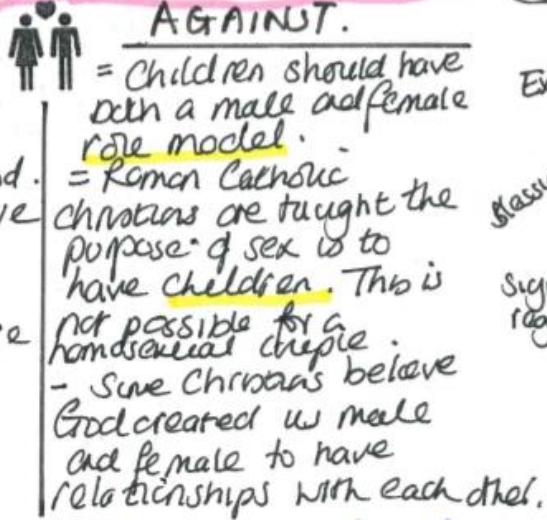 AGAINST.
= Children should have
both a male and female
role model.
= Roman Catholic
christians are taught the
purpose of sex is to
have children. This is
not possible for a
homosexual couple.
- Some Christians believe
God created us male
and female to have
relationships with each other.